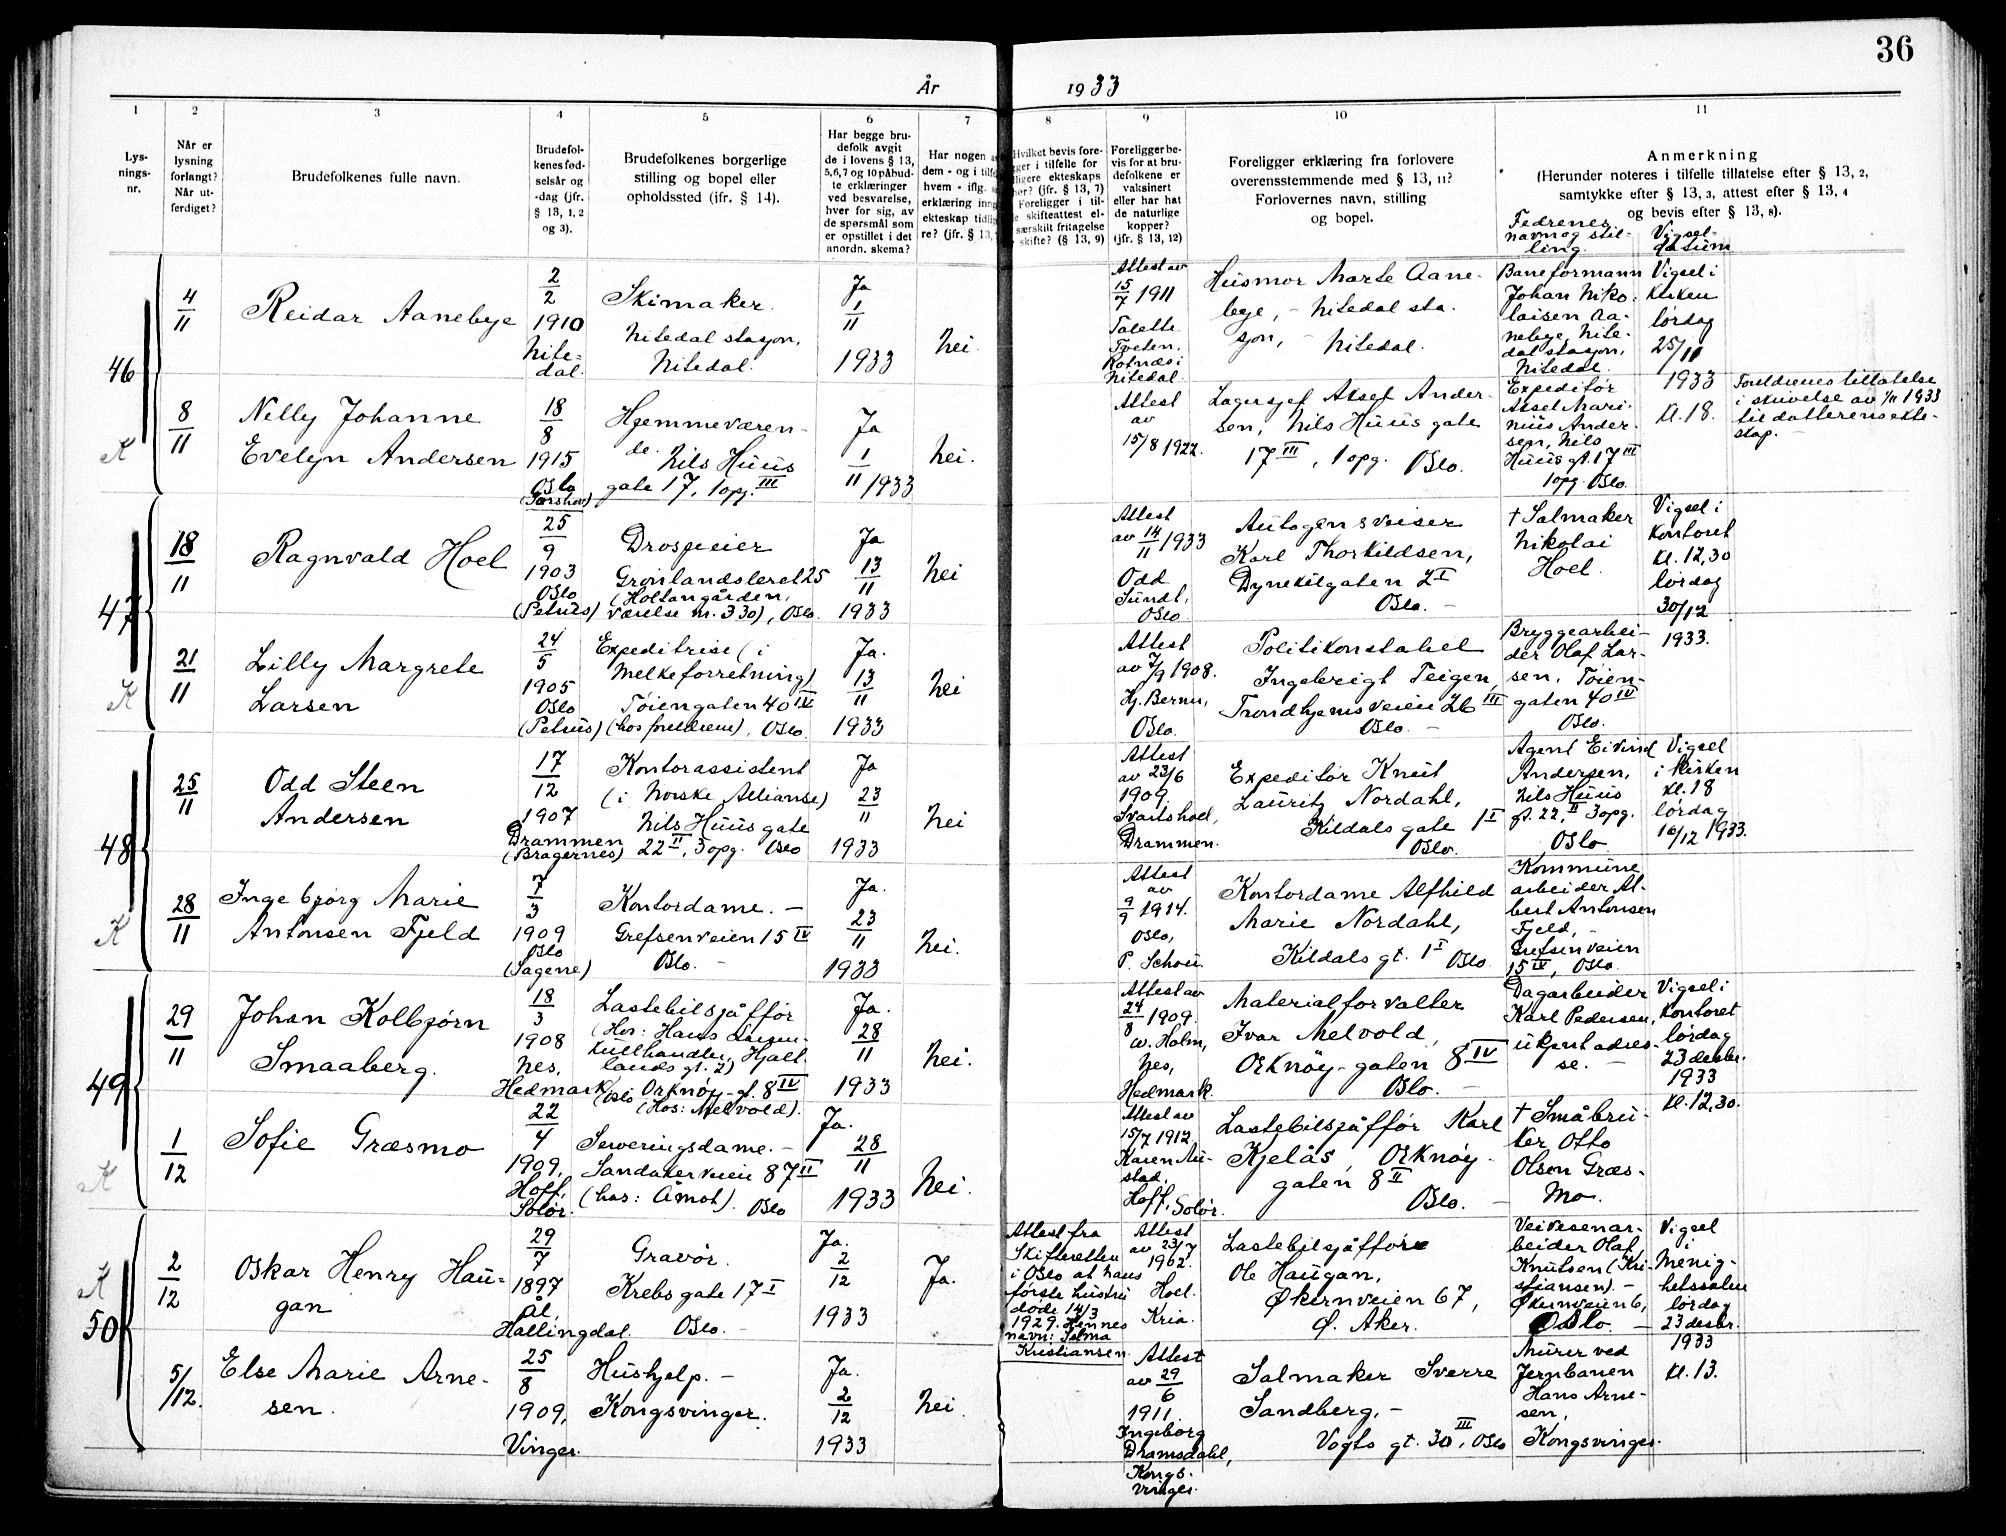 36
År 1933
1
2
3
4
5
6
7
8
9
10
11
Lys-
nings-
nr.
Når er
lysning
forlangt?
Når ut-
ferdiget?
Brudefolkenes fulle navn.
Brudefol-
kenes fød-
selsår og
-dag (jfr.
§ 13, 1, 2
og 3).
Brudefolkenes borgerlige
stilling og bopel eller
opholdssted (ifr. § 14).
Har begge bru-
defolk avgit
de i lovens § 13,
5,6,7 og 10 påbud-
te erklæringer
ved besvarelse,
hver for sig, av
de spørsmål som
er opstillet i det
anordn. skema?
Har nogen
dem - og i tilf
hvem - iflg.
erklæring inng
ekteskap tidlig
re? (jfr. § 13,
Hvilket bevis fore-
ger i tilfelle for
ligere ekteskaps
hør? (jfr. § 13, 7)
Foreligger i til-
e skifteattest el-
særskilt fritagelse
skifte? (§ 13, 9)
Foreligger be-
vis for at bru-
defolkene er
vaksinert
eller har hat
de naturlige
kopper?
(jfr. § 13, 12)
Foreligger erklæring fra forlovere
overensstemmende med § 13, 11?
Forlovernes navn, stilling
og bopel.
Anmerkning
(Herunder noteres i tilfelle tillatelse efter § 13, 2,
samtykke efter § 13, 3, attest efter § 13, 4
og bevis efter § 13, 8).
Fedrenes
navn og stil-
ling.
Vigsel-
datum
46
4/11
Reidar Aanebye
2/2
1910
Nite-
dal.
Skimaker.
Nitedal stasjon,
Nitedal.
Ja
1/11
1933
Nei.
Attest av
15/7 1911
Tveten,
Rotnes i
Nitedal.
Husmor Marte Aane-
bye, - Nitedal sta-
sjon, - Nitedal.
Baneformann
Johan Niko-
laisen Aa-
nebye, Nite-
dal stasjon,
Nitedal.
Vigsel i
kirken
lørdag
25/11
1933
kl. 18.
K
8/11
Nelly Johanne
Evelyn Andersen
18/8
1915
Oslo
(Torshov)
Hjemmeværen-
de. Nils Huus
gate 17, 1 opg. III
Ja
1/11 1933
Nei.
Attest
av
15/8 1922.
Lagersjef Aksel Ander-
sen, Nils Huus gate
17 III, 1 opg. Oslo.
Expeditør
Aksel Mari-
nius Ander-
sen, Nils
Huus gt. 17 III
1 opg. Oslo.
Foreldrenes tillatelse
i skrivelse av 1/11 1933
til datterens ekte-
skap. -
47
18/11
Ragnvald Hoel
25/9
1903
Oslo
(Petrus)
Drosjeeier
Grønlandsleret 25
(Holtangården,
værelse nr. 330), Oslo.
Ja
13/11
1933
Nei
Attest
av 14/11 1933
Odd
Sundt,
Oslo
Autogensveiser
Karl Thorkildsen,
Dynekilgaten 2 I
Oslo. -
† Salmaker
Nikolai
Hoel.
Vigsel i
kontoret
kl. 12,30
lørdag
30/12
1933.
K
21/11
Lilly Margrete
Larsen
24/5
1905
Oslo
(Petrus)
Expeditrise (i
melkeforretning)
Tøiengaten 40 IV
(hos foreldrene), Oslo.
Ja.
13/11
1933
Nei
Attest
av 7/9 1908.
Hj. Berner,
Oslo.
Politikonstabel
Ingebrigt Teigen,
Trondhjemsveien 26 III
Oslo. -
Bryggearbei-
der Olaf Lar-
sen, Tøien-
gaten 40 IV
Oslo.
48
25/11
Odd Steen
Andersen
17/12
1907
Drammen
(Bragernes)
Kontorassistent
(i Norske Allianse)
Nils Huus gate
22 II, 3 opg. Oslo
Ja
23/11
1933
Nei
Attest
av 23/6
1909.
Svartshoel,
Drammen.
Expeditør Knut
Lauritz Nordahl,
Kildals gate 1 I
Oslo.
Agent Eivind
Andersen,
Nils Huus
gt. 22, II 3 opg.
Oslo
Vigsel
i kirken
kl. 18
lørdag
16/12 1933.
K
28/11
Ingebjørg Marie
Antonsen Fjeld
7/3
1909
Oslo
(Sagene)
Kontordame. -
Grefsenveien 15 IV
Oslo. -
Ja.
23/11
1933
Nei.
Attest
av
9/9 1914.
Oslo,
P. Schou.
Kontordame Alfhild
Marie Nordahl,
Kildals gt. 1 I Oslo
Kommune
arbeider Al-
bert Antonsen
Fjeld, -
Grefsenveien
15 IV, Oslo
49
29/11
Johan Kolbjørn
Smaaberg.
18/3
1908
Nes,
Hedmark
Lastebilsjåffør
(Hos: Hans Larsen
kullhandler, Hjalt-
lands gt. 2)
Oslo Orknøy-gt. 8 IV
(Hos: Melvold).
Ja.
28/11
1933
Nei.
Attest av
24/8 1909.
W. Holm,
Nes,
Hedmark.
Materialforvalter
Ivar Melvold,
Orknøy-gaten 8 IV
Oslo. -
Dagarbeider
Karl Pedersen,
ukjent adres-
se. -
Vigsel i
kontoret
lørdag
23 desbr.
1933
kl. 12,30.
K
1/12
Sofie Græsmo
22/4
1909,
Hoff,
Solør.
Serveringsdame. -
Sandakerveien 87 II
(hos: Åmot). Oslo
Ja.
28/11
1933
Nei.
Attest av
15/7 1912
Karen Au-
stad,
Hoff, Solør.
Lastebilsjåffør Karl
Kjelås, Orknøy-
gaten 8 II
Oslo. -
† Småbru-
ker Otto
Olsen Græs-
mo.
K
50
2/12
Oskar Henry Hau-
gan
29/7
1897
Ål,
Hallingdal.
Gravør.
Krebs gate 17 I
Oslo. -
Ja.
2/12
1933
Ja.
Attest fra
Skifteretten
i Oslo at hans
første hustru
døde 14/3
1929. Hennes
navn: Selma
Kristiansen.
Attest
av 23/7
1902.
Hoel.
Kria.
Lastebilsjåffør
Ole Haugan,
Økernveien 67,
Ø. Aker.
Veivesenar-
beider Olaf
Knutsen (Kri-
stiansen). -
Økernveien 6,
Oslo. -
Vigsel
i
Menig-
hetssalen
lørdag
23 desbr.
1933
kl. 13.
5/12.
Else Marie Arne-
sen.
25/8
1909,
Vinger.
Hushjelp. -
Kongsvinger.
Ja.
2/12
1933
Nei.
Attest
av 29/6
1911.
Ingeborg
Dramsdahl,
Kongs-
vinger.
Salmaker Sverre
Sandberg, -
Vogts gt. 30 III, Oslo
Murer ved
Jernbanen
Hans Arne-
sen,
Kongsvinger.